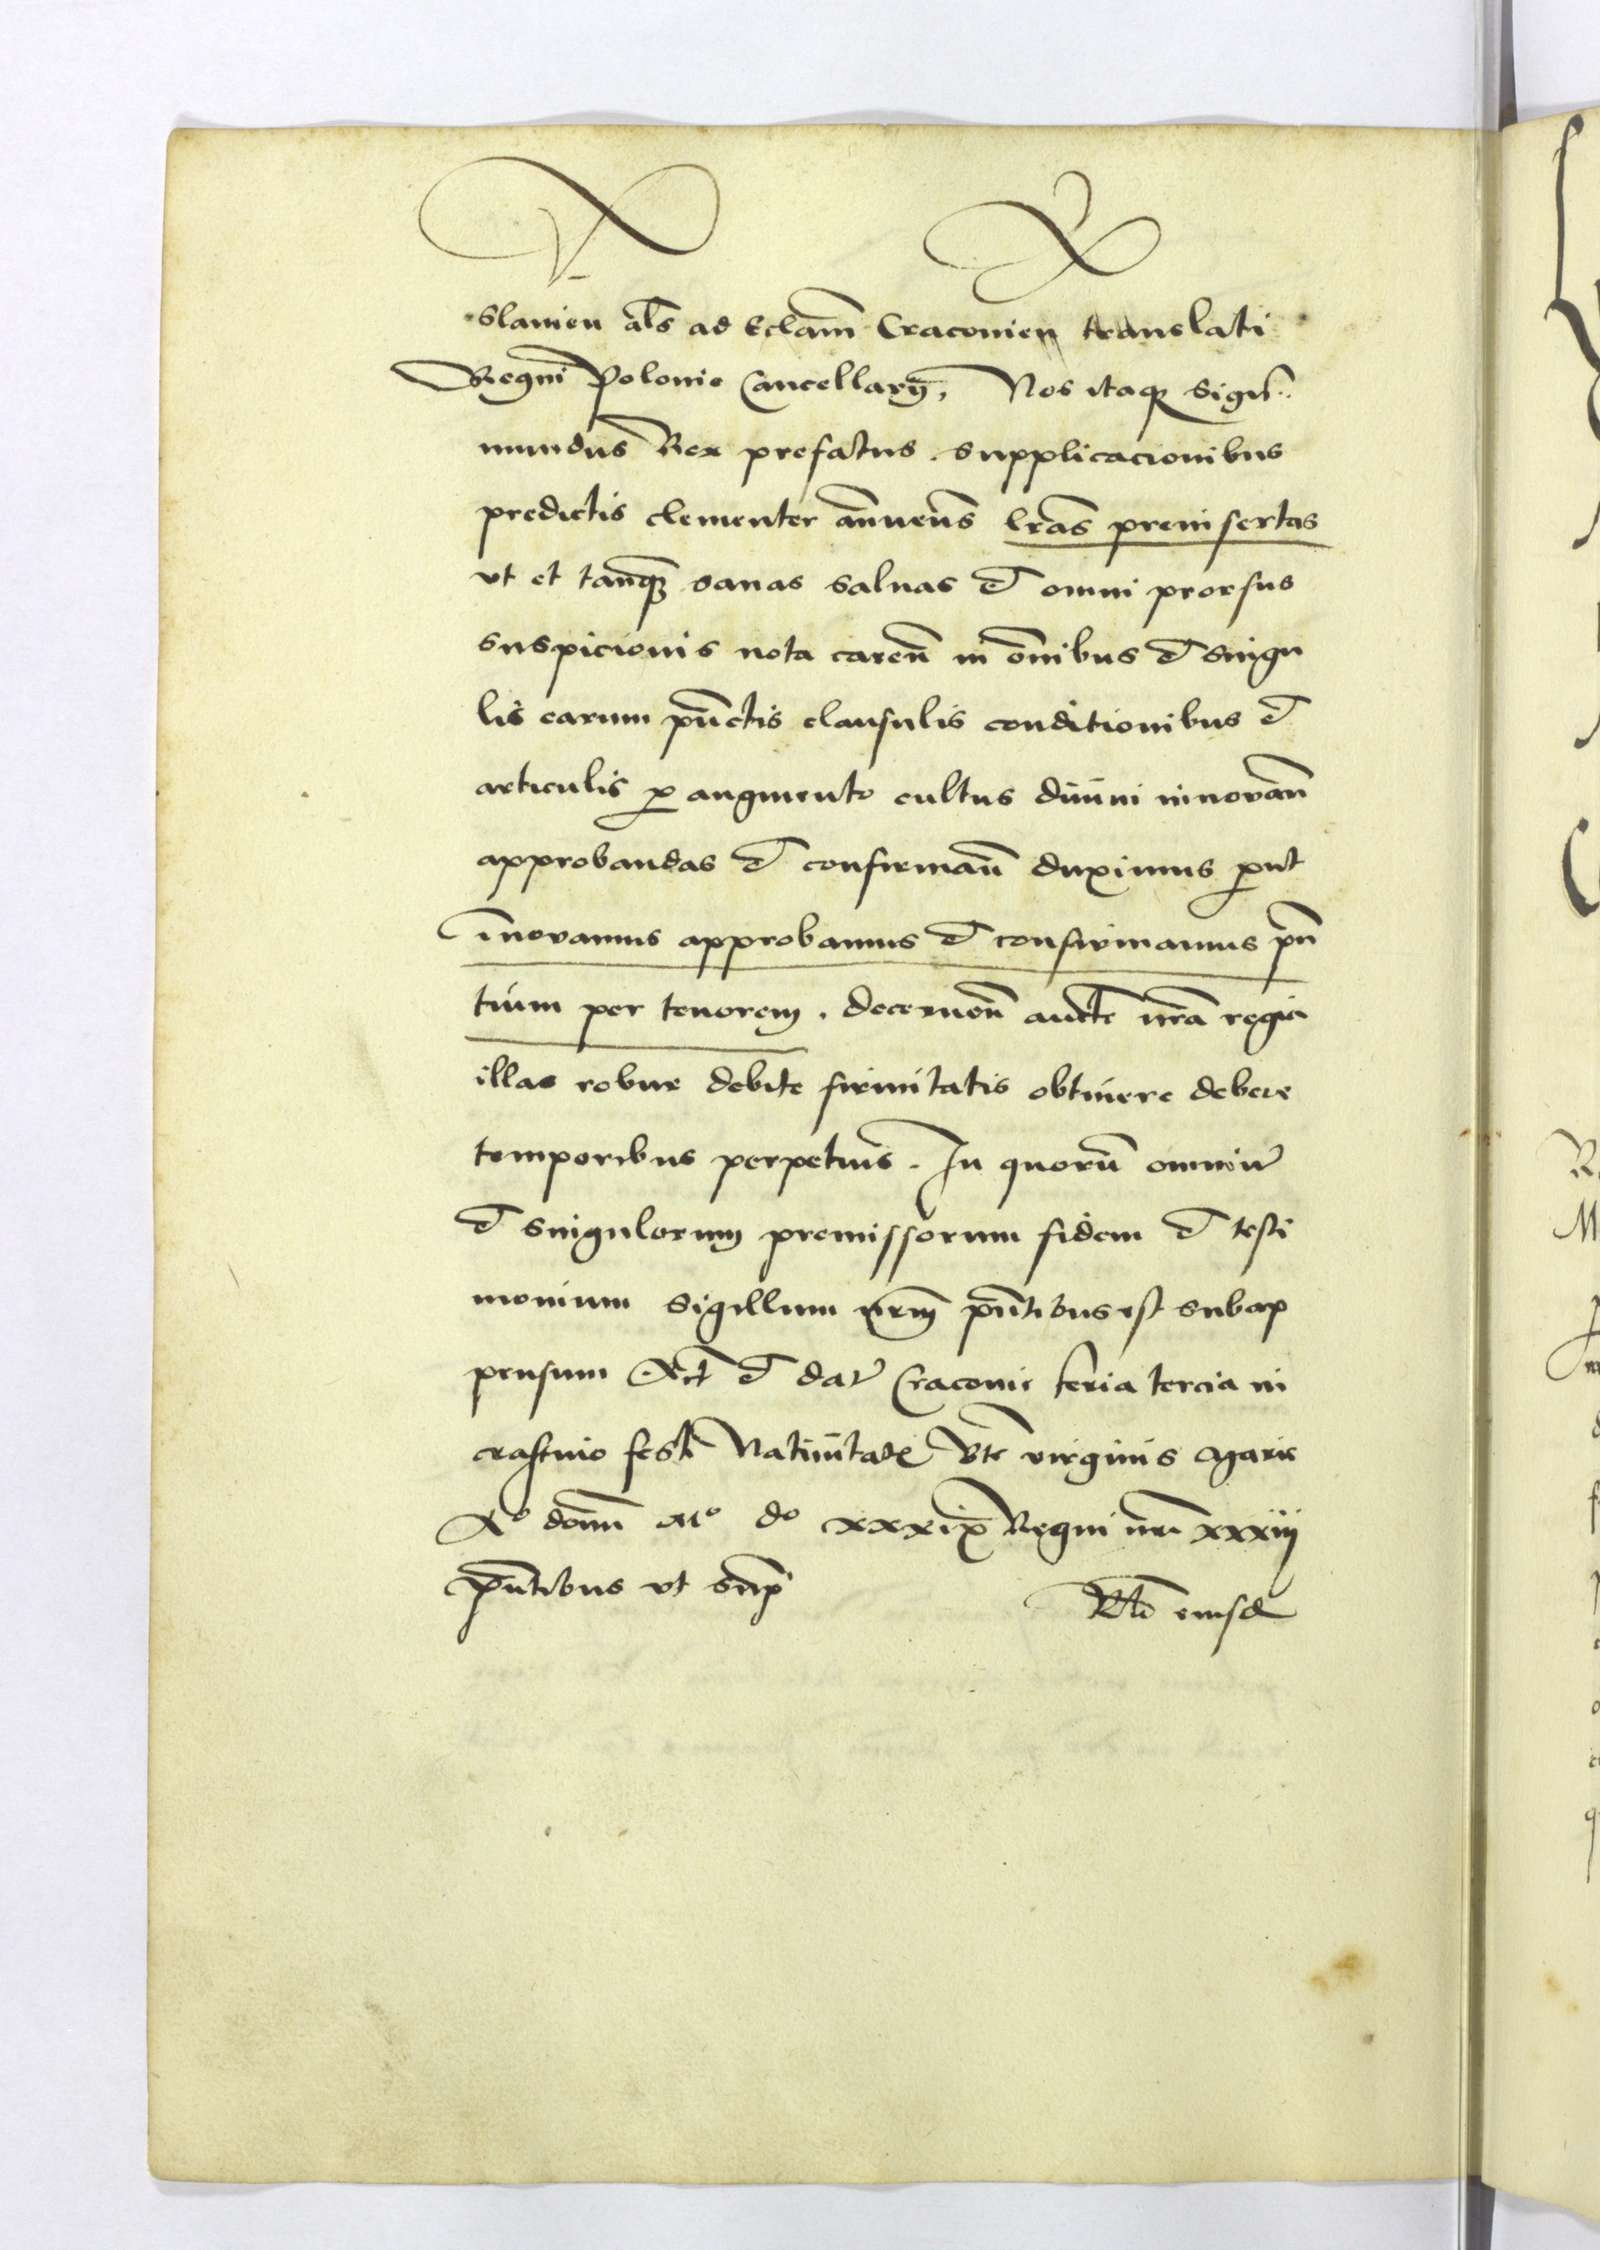 slauien als ad Eclam Craconien translati
Regni Polonie Cancellary, Nos itaq Sigis
mundus Rex prefatus supplicacionibus
predictis clementer annuens lras preinsertas
vt et tanq sanas saluas et omni prorsus
suspicionis nota caren in omibus et singu
lis earum punctis clausulis conditionibus et
articulis p augmento cultus diuini innouan
approbandas et confirman duximus put
innouamus approbamus et confirmamus pn
tium per tenorem. decernen aucte nra regia
illas robur debite firmitatis obtinere debere
temporibus perpetuis. In quorum omniu
et singulorum premissorum fidem et testi
monium Sigillum nrm pntibus est subap
pensum Act et dat Craconie feria tercia in
crastino festi Natiuitatis Bte virginis Marie
Ao domi Mo do xxxix Regni nri xxxiij
pntibus vt sup
Rlo eiusd